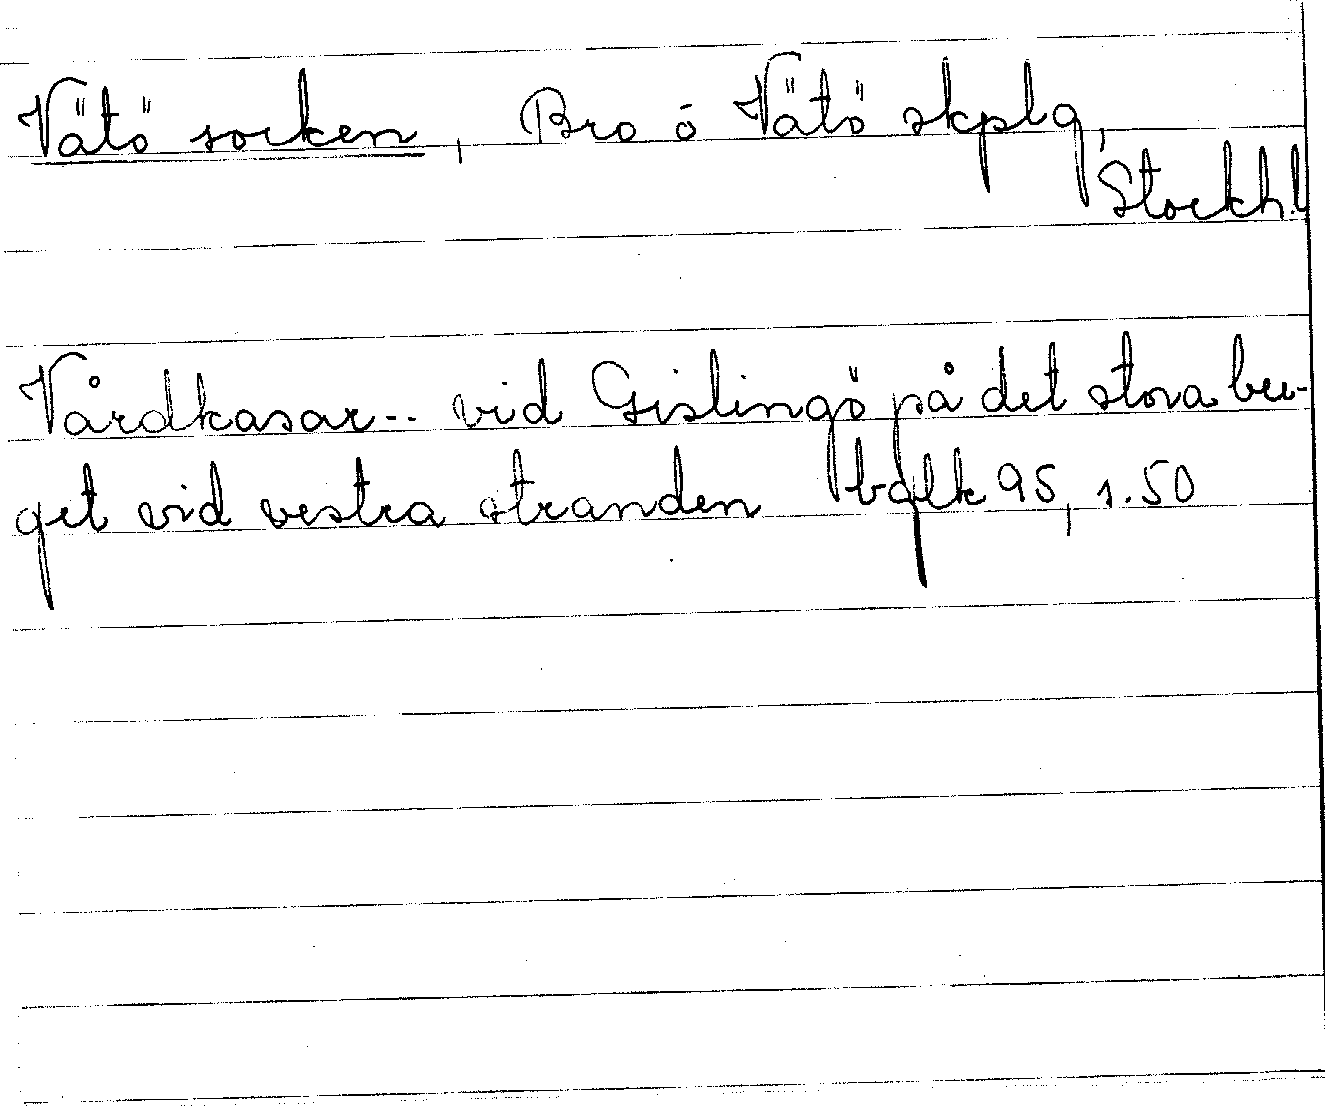 Vätö socken, Bro o Vätö skplg,
Stockh.l
Vårdkasar-- vid Gislingö på det stora ber-
get vid vestra stranden bglk 95, s.50